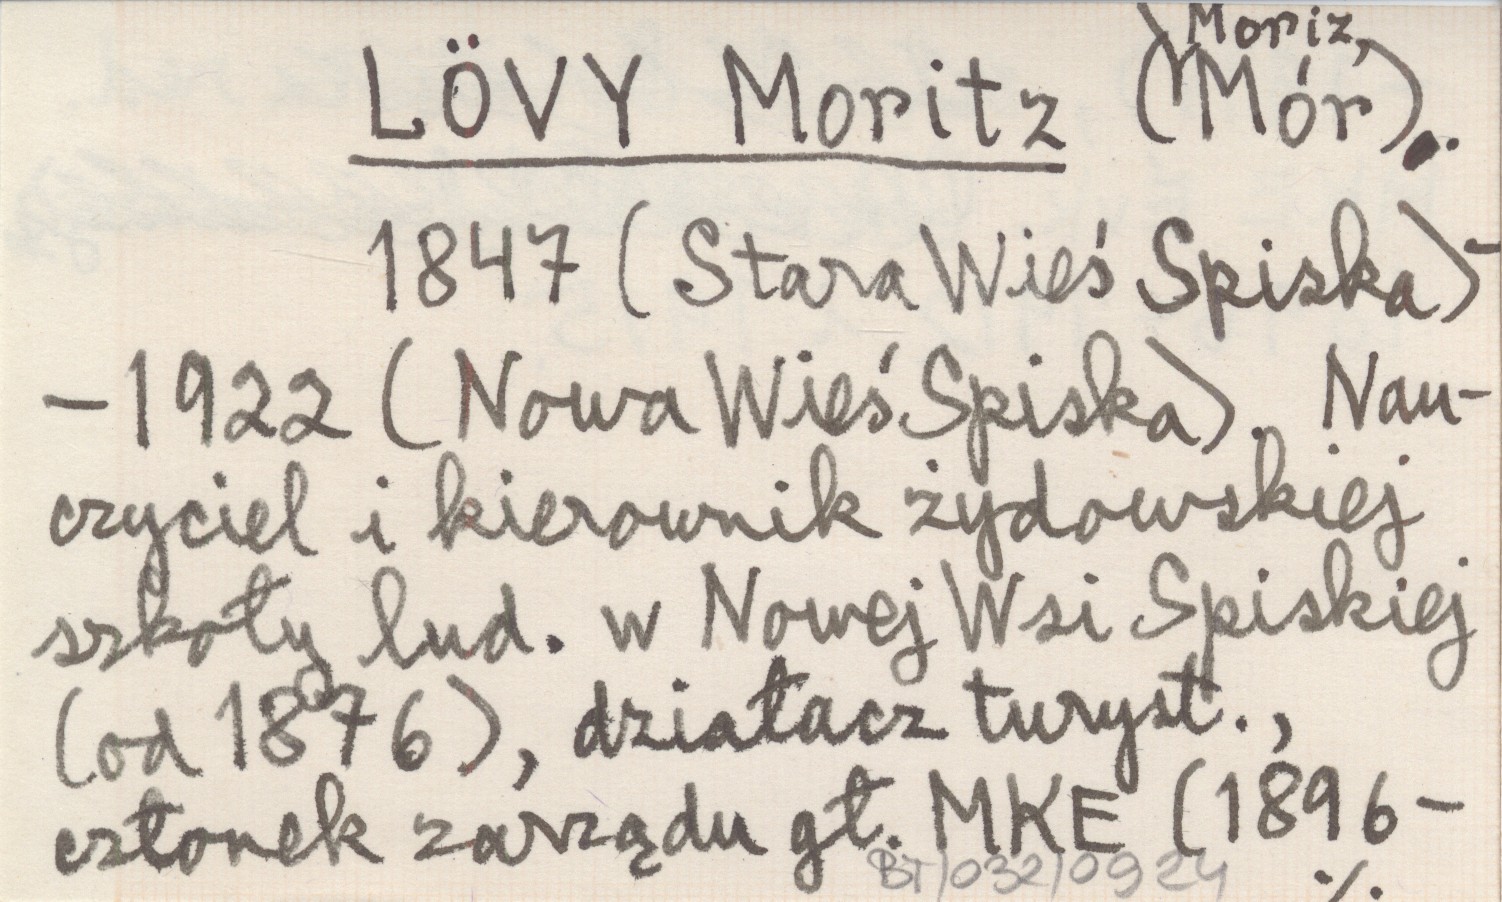 Moriz,
LÖVY Moritz (Mór).
1847 (Stara Wieś Spiska)-
-1922 (Nowa Wieś Spiska). Nau-
czyciel i kierownik żydowskiej
szkoły lud. w Nowej Wsi Spiskiej
(od 1876), działacz turyst.,
członek zarządu gł. MKE (1896-
BT/032/0924
./.